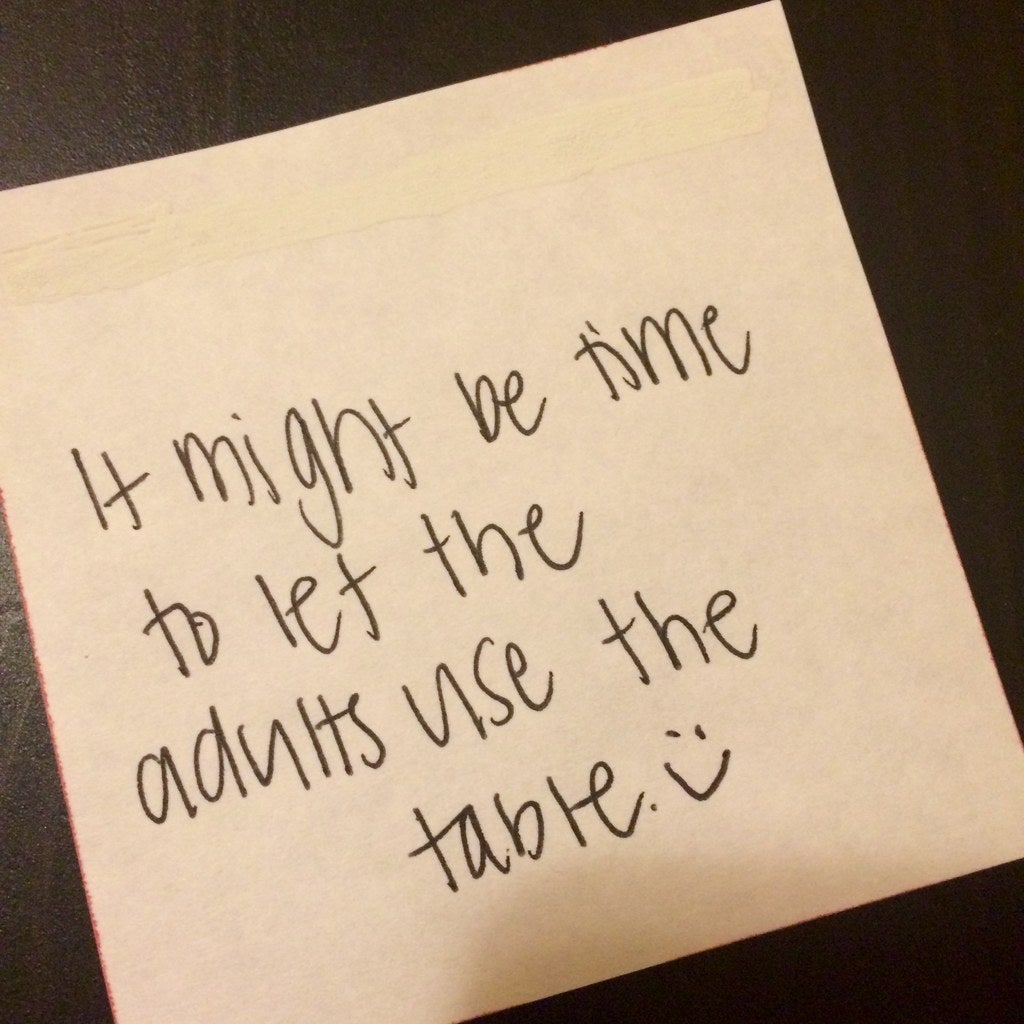 It might be time
to let the
adults use the
table. :)